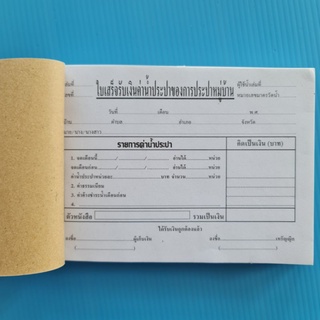 เล่มที่ ใบเสร็จรับเงินค่าน้ำประปาของการประปาหมู่บ้าน ผู้ใช้น้ำเล่มที่
เลขที่ หมายเลขมาตรวัดน้ำ
วันที่ เดือน พ.ศ.
บ้าน ตำบล อำเภอ จังหวัด
นาย/นาง/นางสาว
รายการค่าน้ำประปา คิดเป็นเงิน (บาท)
1. จดเดือนนี้ / / อ่านได้ หน่วย
จดเดือนก่อน / / อ่านได้ หน่วย
ค่าน้ำประปาหน่วยละ บาท จำนวน หน่วย
2. ค่าธรรมเนียม
3. ค่าค้างชำระน้ำเดือนก่อน
4.
ตัวหนังสือ รวมเป็นเงิน
ได้รับเงินถูกต้องแล้ว
ลงชื่อ ผู้เก็บเงิน ลงชื่อ เหรัญญิก
( ) ( )